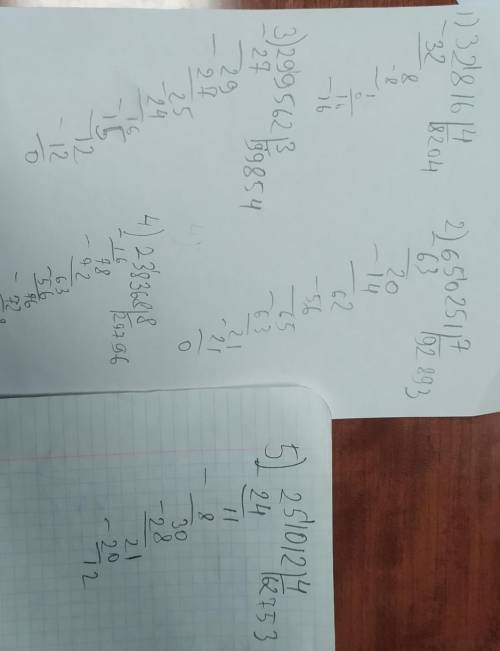 1) 32816 | 4
- 32 | 8204
8
- 8
16
- 16
2) 650251 | 7
- 63 | 92893
20
- 14
62
- 56
65
- 63
21
- 21
0
3) 299562 | 3
- 27 | 99854
29
- 27
25
- 24
16
- 15
12
- 12
0
4) 238368 | 8
- 16 | 29796
78
- 72
63
- 56
76
- 72
5) 251012 | 4
- 24 | 62753
11
- 8
30
- 28
21
- 20
12